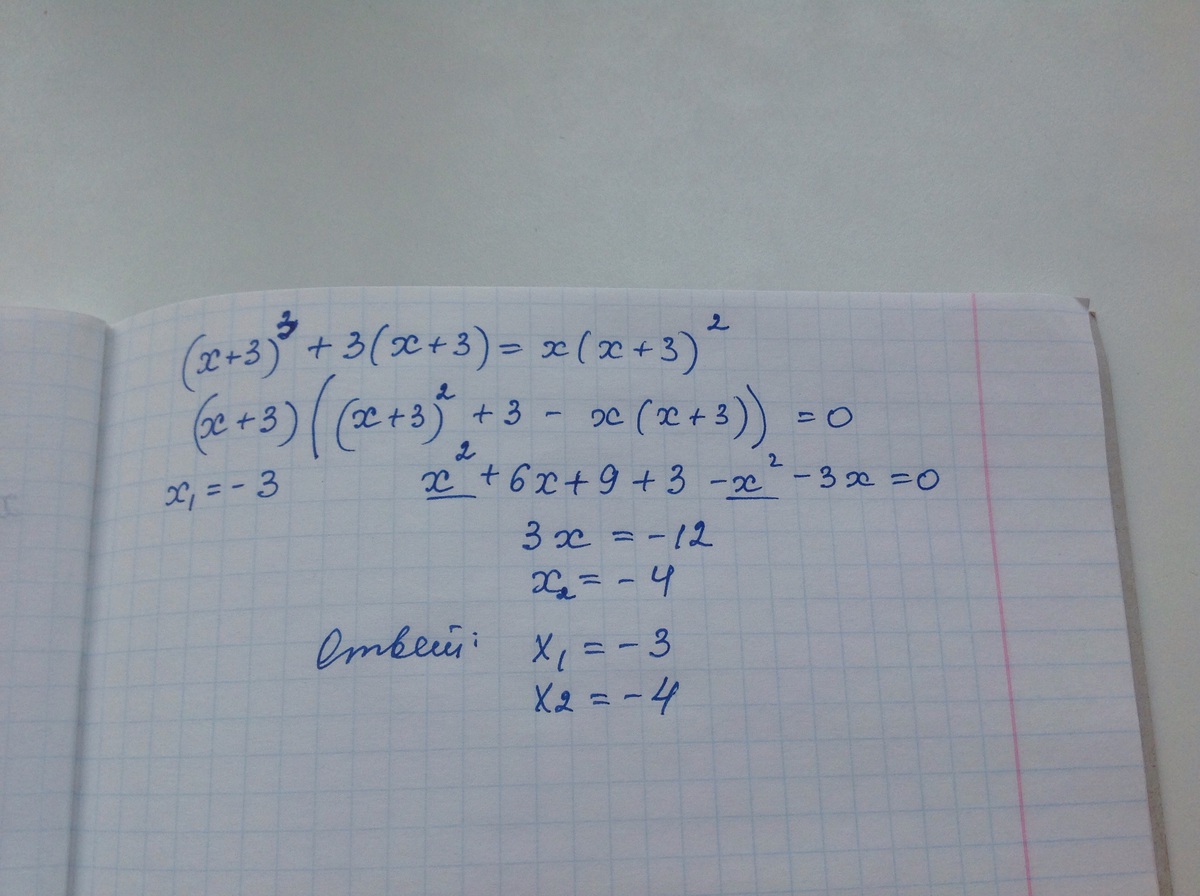 (x+3)³ + 3(x+3) = x(x+3)²
(x+3)((x+3)² + 3 - x(x+3)) = 0
x₁ = -3 x² + 6x + 9 + 3 - x² - 3x = 0
3x = -12
x₂ = -4
Ответ: x₁ = -3
x2 = -4